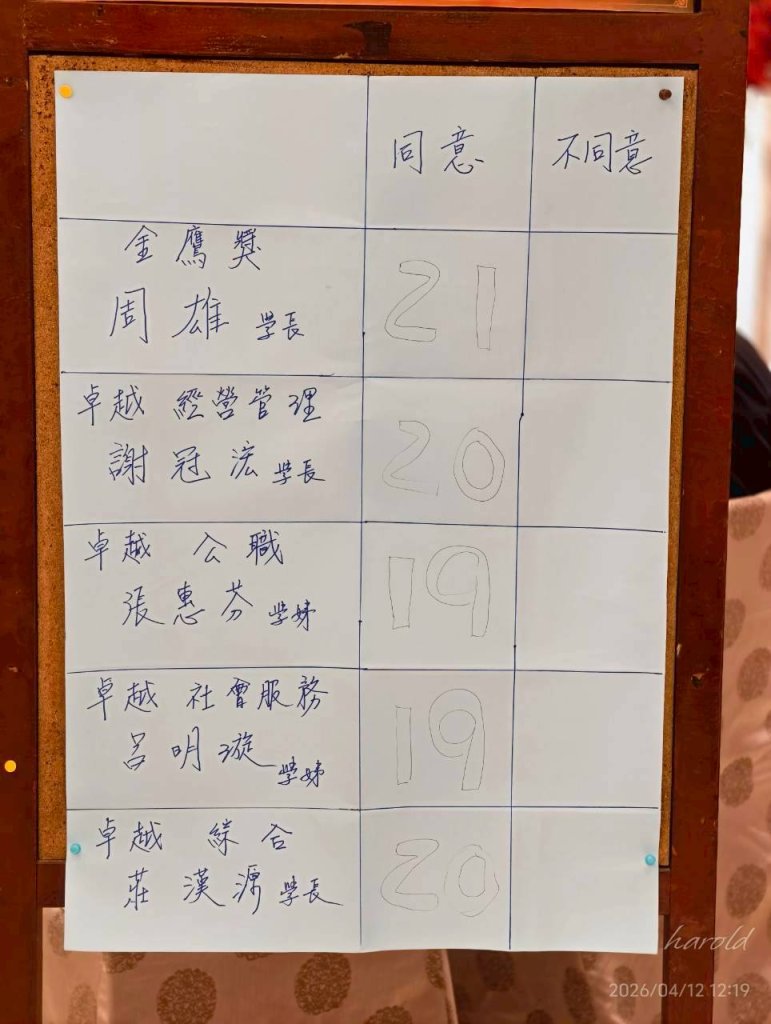 同意 不同意
金鷹獎
周雄 学長
21
卓越 經營管理
謝冠浤 学長
20
卓越 公職
張惠芬 学姊
19
卓越 社會服務
呂明璇 学姊
19
卓越 綜合
莊漢源 学長
20
harold
2026/04/12 12:19